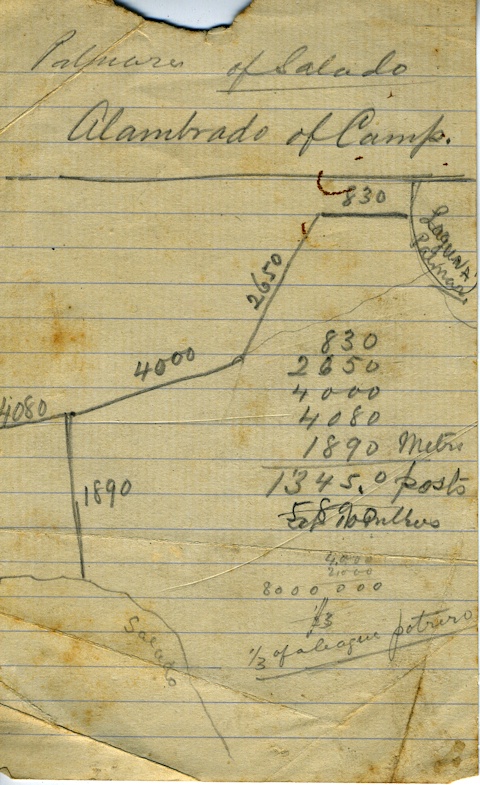 Palmares of Salado
Alambrado of Camp.
830
Laguna
Palmar
2650
4000
4080
1890
830
2650
4000
4080
1890 Metrs
1345.0 posts
4.000
2.000
8000 000
1/3
1/3 of a league potrero
Salado